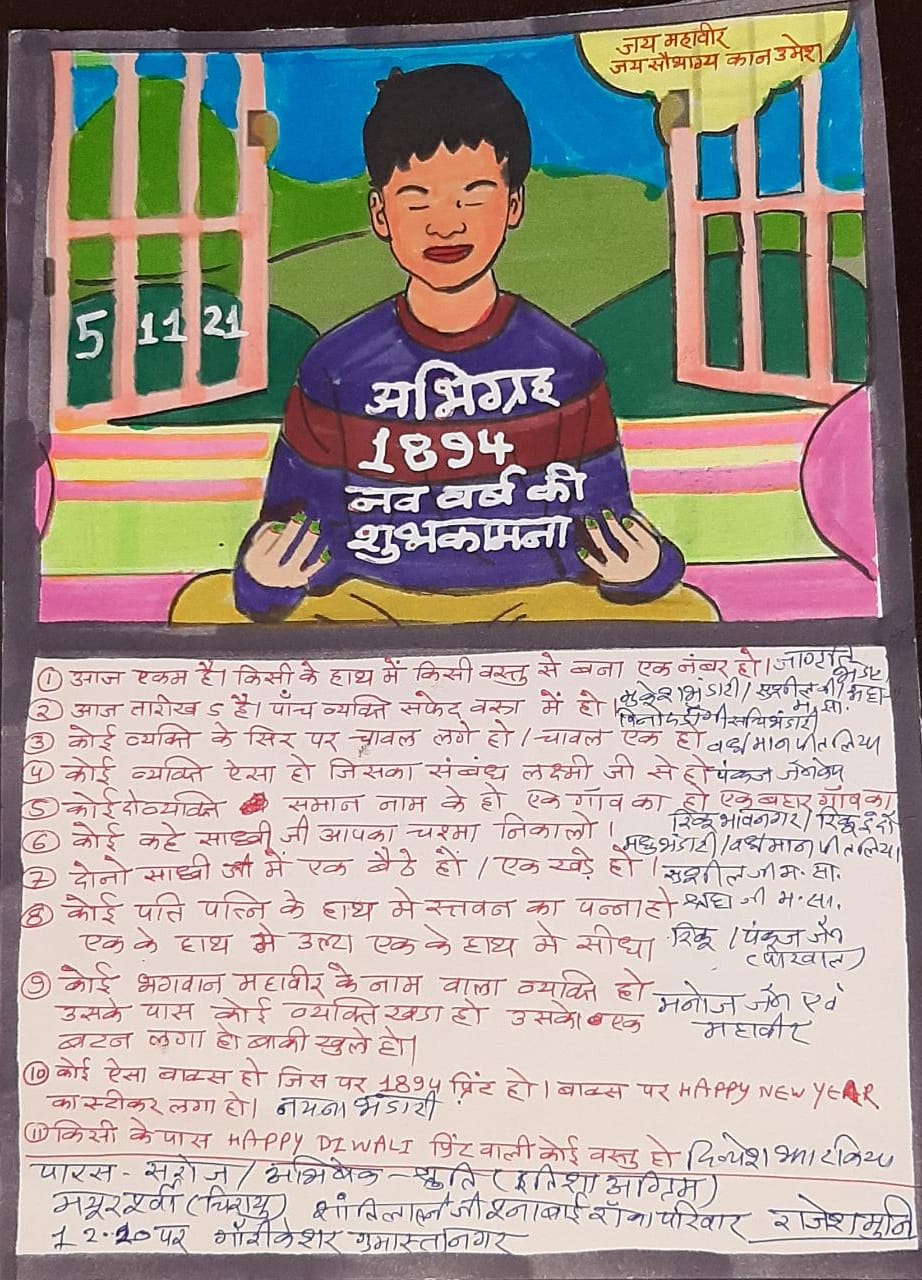 जय महावीर
जय सौभाग्य कान उमेश
5 11 21
अभिग्रह
1894
नव वर्ष की
शुभकामना
① आज एकम है। किसी के हाथ में किसी वस्तु से बना एक नंबर हो। जागृति भंडारी
② आज तारीख 5 है। पाँच व्यक्ति सफेद वस्त्र में हो।
मुकेश भंडारी / सुशील जी /
म. सा.
③ कोई व्यक्ति के सिर पर चावल लगे हो / चावल एक हो वर्धमान पीतलिया
④ कोई व्यक्ति ऐसा हो जिसका संबंध लक्ष्मी जी से हो पंकज जैन
⑤ कोई दो व्यक्ति समान नाम के हो एक गाँव का हो एक बहार गाँव का
रिंकू भावनगर / रिंकू इंदौर
⑥ कोई कहे साध्वी जी आपका चश्मा निकालो।
मधु भंडारी / वर्धमान पीतलिया
⑦ दोनो साध्वी जी में एक बैठे हों / एक खड़े हो। सुशील जी म. सा.
⑧ कोई पति पत्नि के हाथ मे स्तवन का पन्ना हो श्रद्धा जी म. सा.
एक के हाथ मे उल्टा एक के हाथ मे सीधा। रिंकू / पंकज जैन
(पोरवाल)
⑨ कोई भगवान महावीर के नाम वाला व्यक्ति हो
उसके पास कोई व्यक्ति खड़ा हो उसके एक मनोज जैन एवं
बटन लगा हो बाकी खुले हो। महावीर
⑩ कोई ऐसा बाक्स हो जिस पर 1894 प्रिंट हो। बाक्स पर HAPPY NEW YEAR
का स्टीकर लगा हो। नयना भंडारी
⑪ किसी के पास HAPPY DIWALI प्रिंट वाली कोई वस्तु हो दिव्येश
पारस - सरोज / अभिषेक - श्रुति (इतिशा अग्रिम)
(चिरायु) शांतिलाल जी परिवार राजेश मुनि
12.20 पर गुमास्तानगर